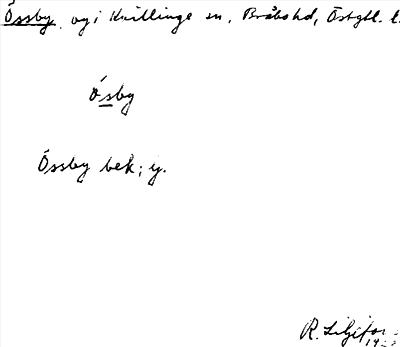 Össby, ogi Kvillinge sn, Bråbohd, Östgtl. l.
Ósby
Össby bek; ij.
R. Liljefors